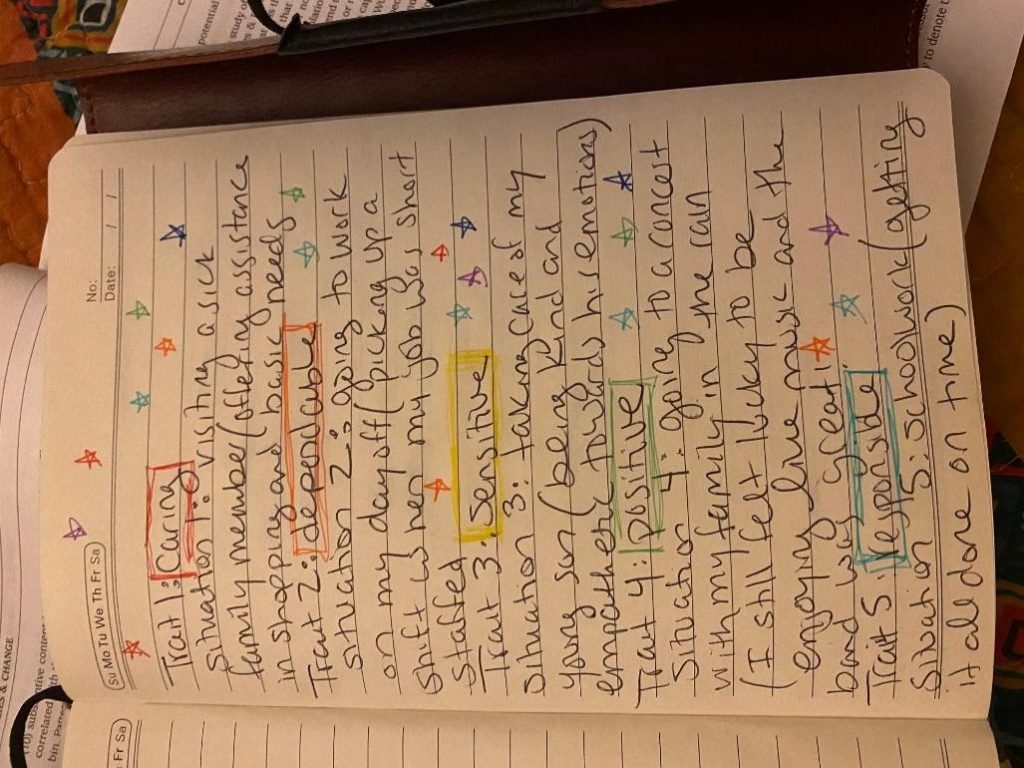 No:
Date: / /
Su Mo Tu We Th Fr Sa
Trait 1: Caring
Situation 1: visiting a sick
family member (offering assistance
in shopping and basic needs
Trait 2: dependable
situation 2: going to work
on my day off (picking up a
shift when my job was short
staffed
Trait 3: Sensitive
Situation 3: taking care of my
young son (being kind and
empathetic towards his emotions)
Trait 4: positive
Situation 4: going to a concert
with my family in the rain
(I still felt lucky to be
enjoying live music and the
band was great!
Trait 5: responsible
Situation 5: schoolwork (getting
it all done on time)
Fr Sa
S & CHANGE
correlated
potential
study of
to denote t